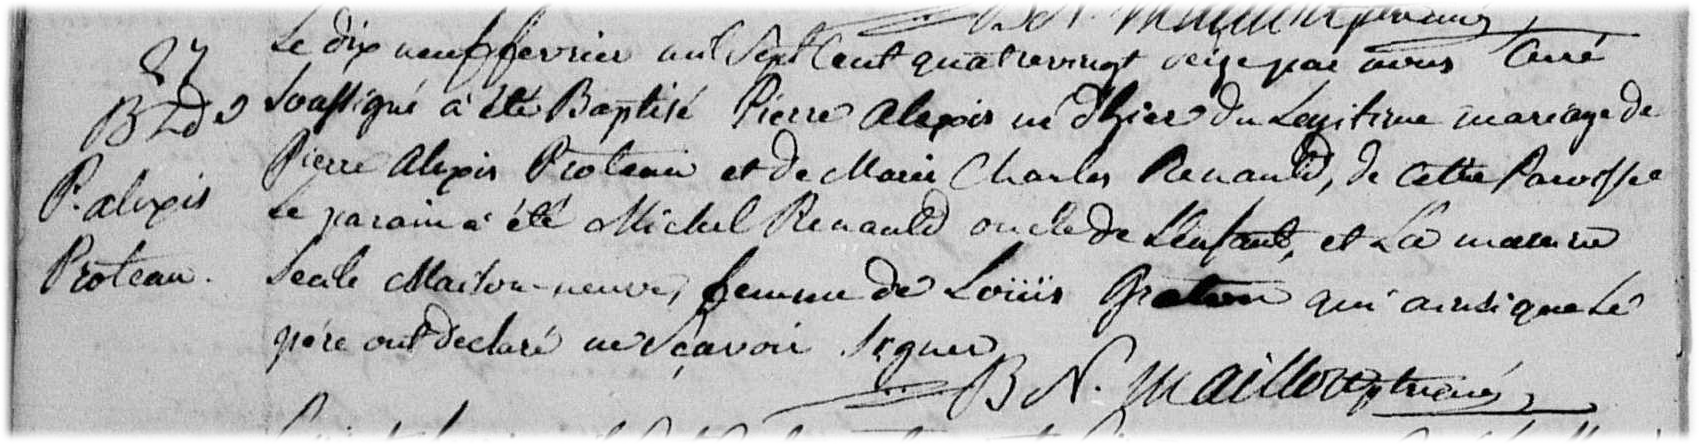 B.N. Mailloux ptre curé
27
B 2d 9
P. alexis
Proteau.
Le dix neuf fevrier mil Sept Cent quatrevingt seize par nous Curé
Soussigné à été Baptisé Pierre Alexis né d'hier du Legitime mariage de
Pierre Alexis Proteau et de Marie Charles Renauld, de cette Paroisse
Le parain a été Michel Renauld oncle de L'enfant, et La maraine
Secile Maison-neuve, femme de Loüis Graton qui ainsi que Le
père ont déclaré ne Sçavoir Signer
B N. Mailloux ptre curé